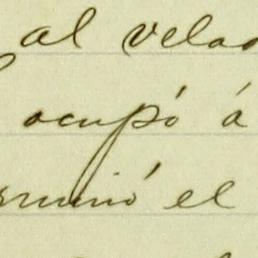 al velad
ocupó á
rrumió el